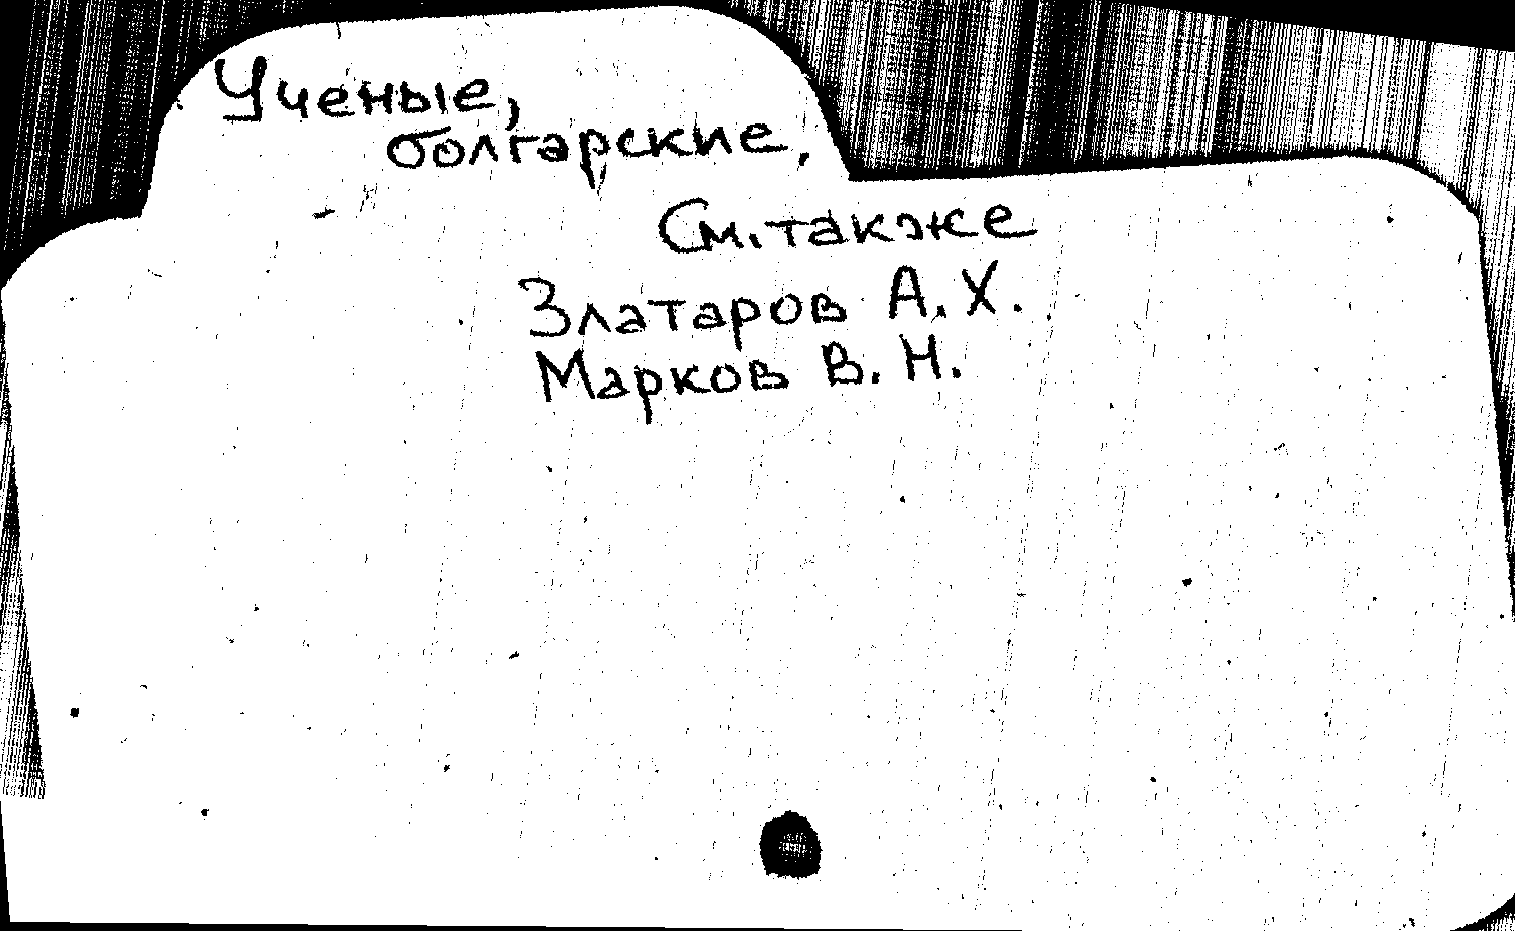 Ученые,
болгарские.
См. также
Златаров А. Х.
Марков В. Н.